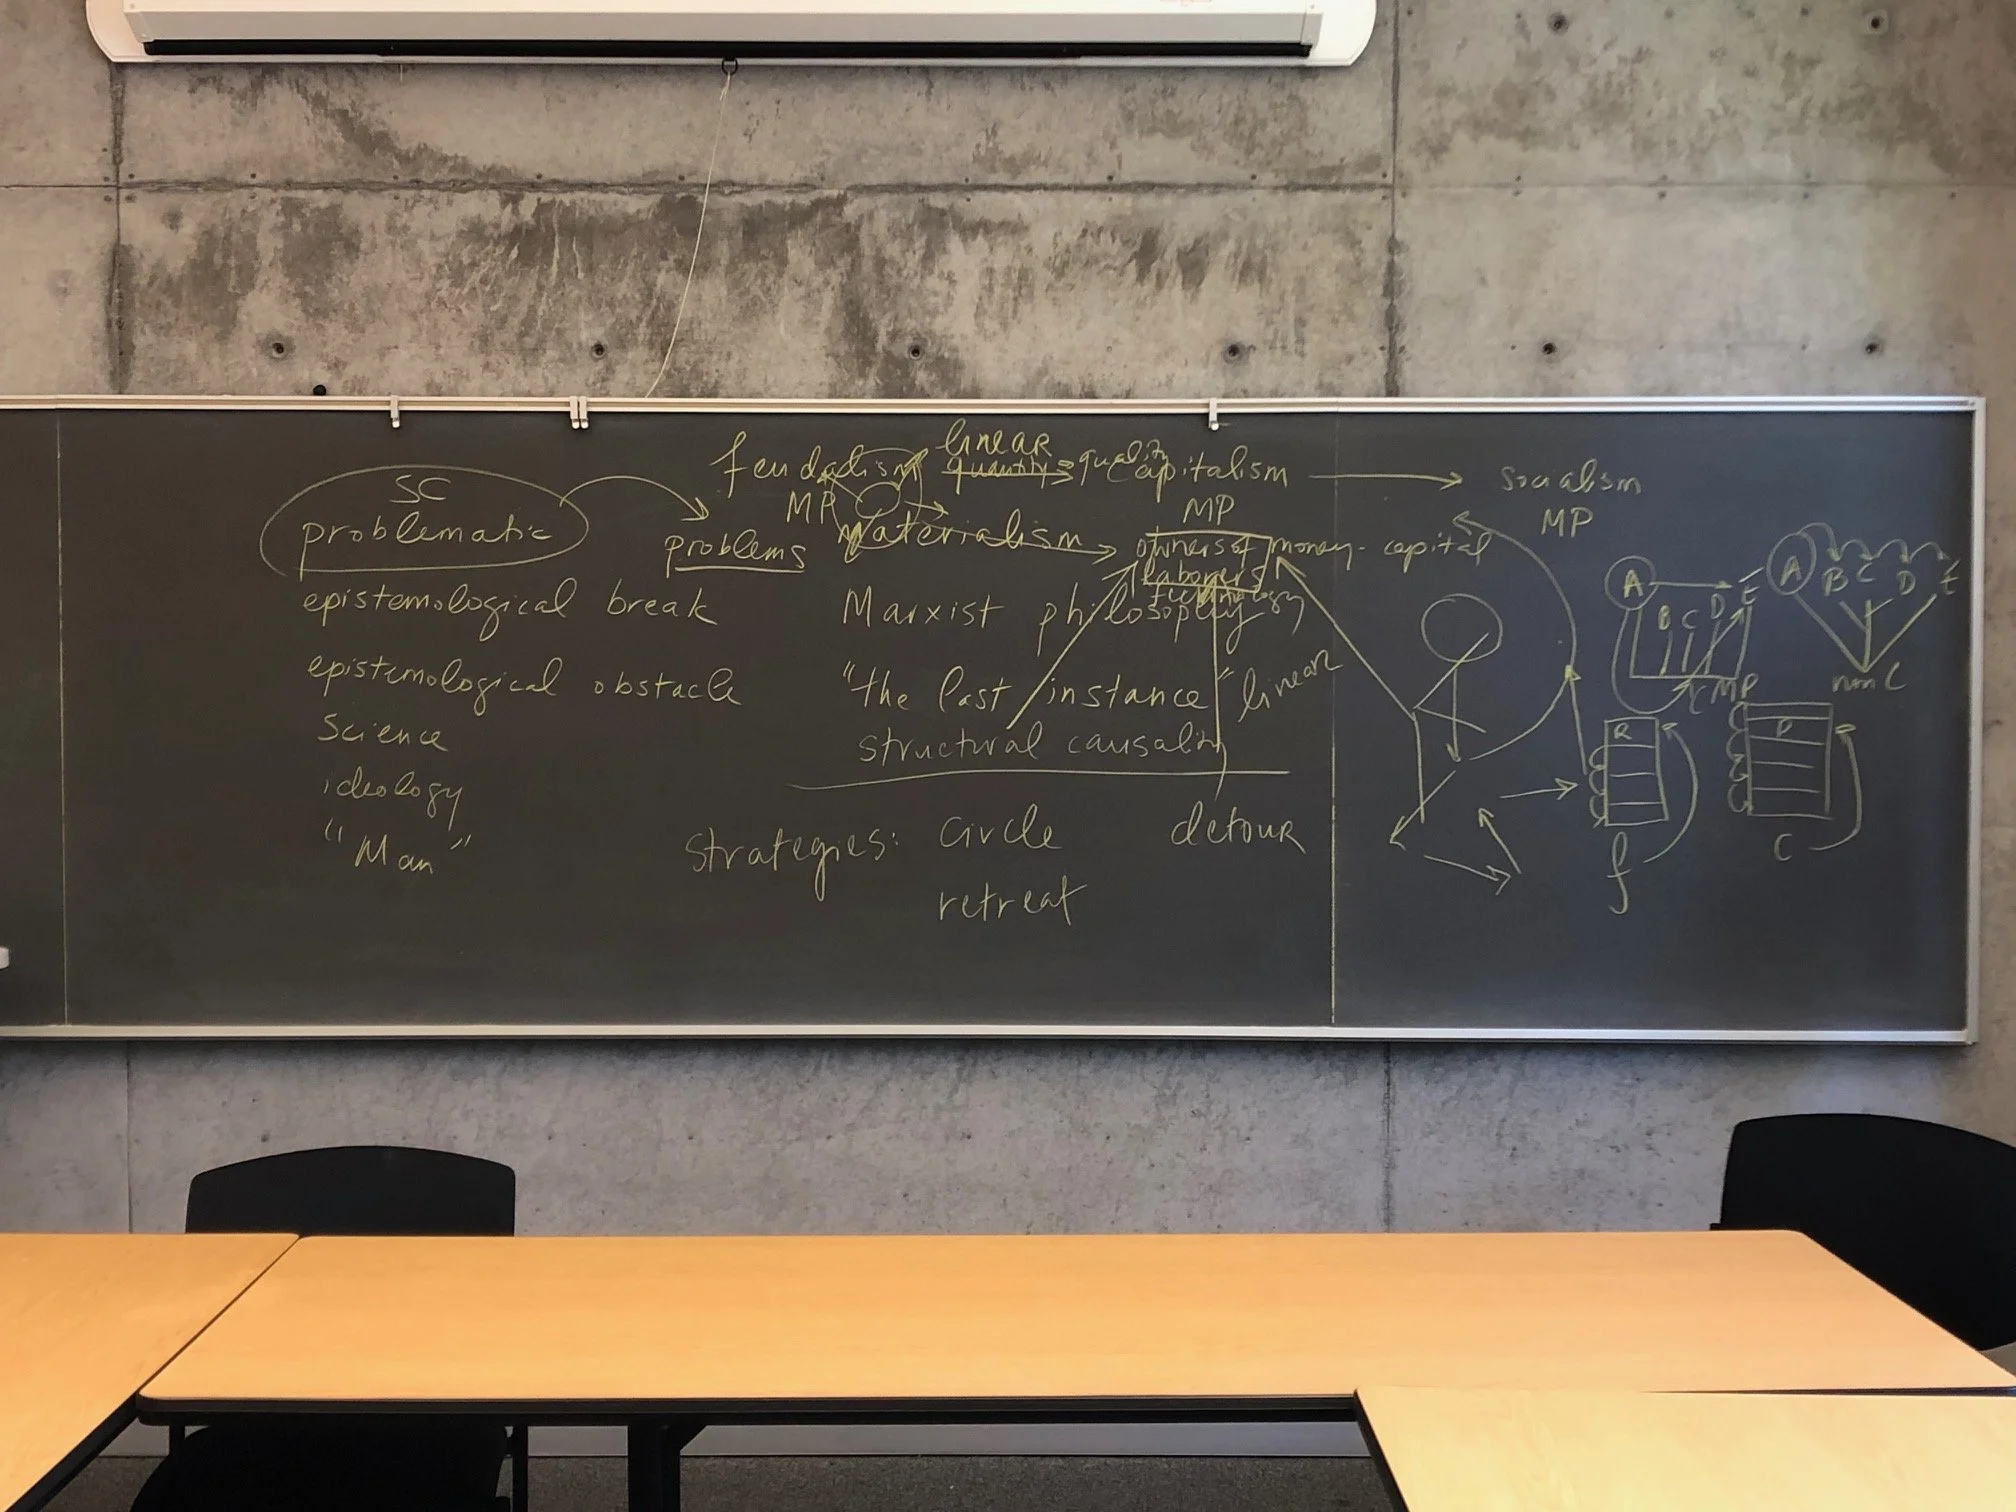 SC
problematic
epistemological break
epistemological obstacle
Science
ideology
"Man"
problems
feudalism
MP
linear
quantity → quality
capitalism
MP
socialism
MP
Materialism
owners of money-capital
laborers
technology
Marxist philosophy
"the last instance"
linear
structural causality
strategies: circle detour
retreat
A
B C D E
CMP
A
B C D E
non C
R
f
P
C